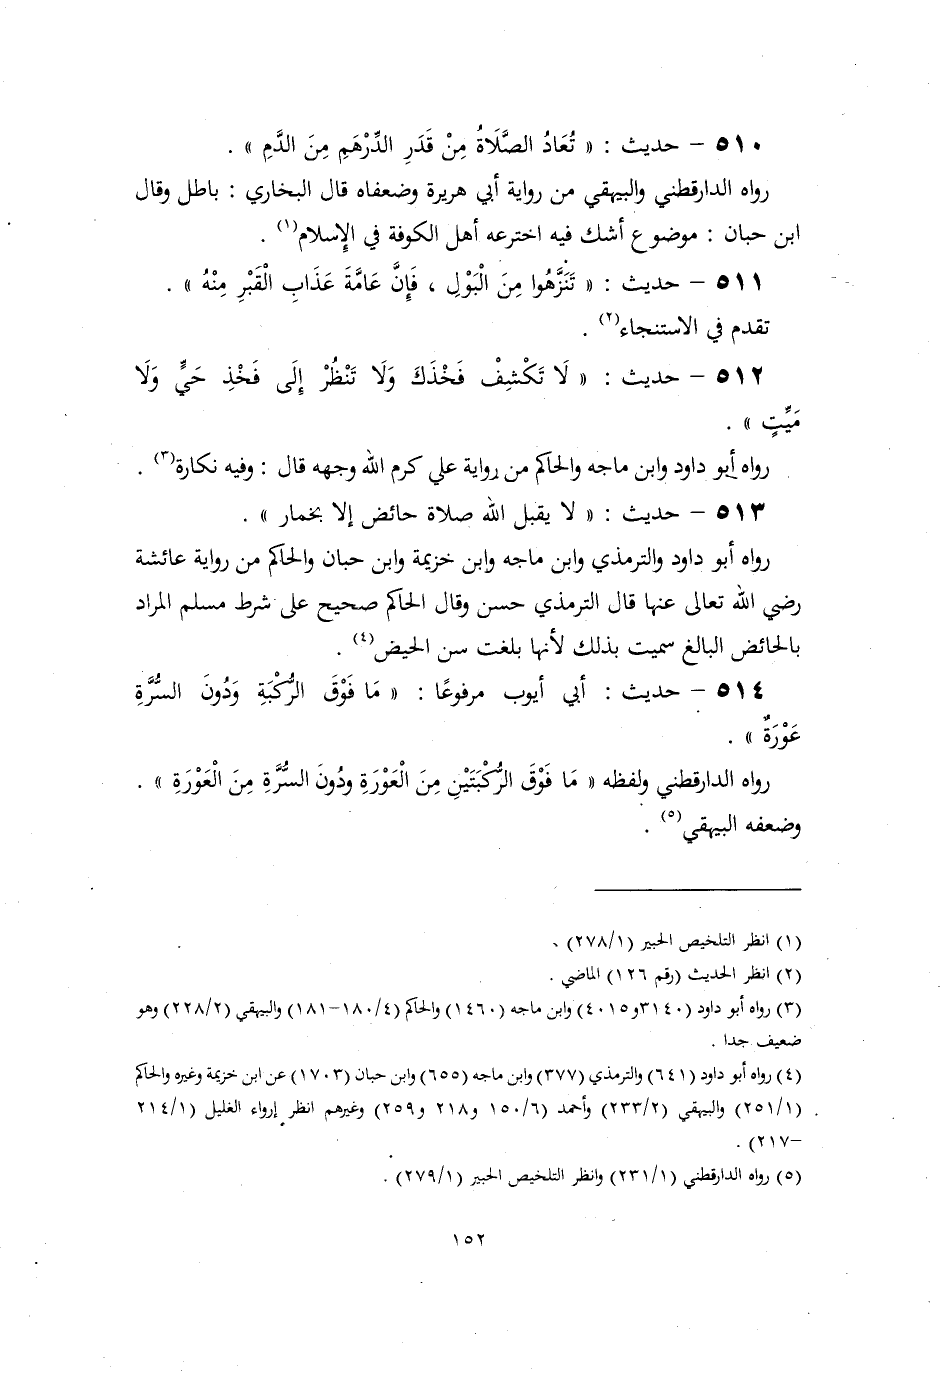 ٥١٠ – حديث : « تُعَادُ الصَّلَاةُ مِنْ قَدَرِ الدِّرْهَمِ مِنَ الدَّمِ » .
رواه الدارقطني والبيهقي من رواية أبي هريرة وضعفاه قال البخاري : باطل وقال
ابن حبان : موضوع أشك فيه اخترعه أهل الكوفة في الإسلام(١) .
٥١١ – حديث : « تَنَزَّهُوا مِنَ الْبَوْلِ ، فَإِنَّ عَامَّةَ عَذَابِ الْقَبْرِ مِنْهُ » .
تقدم في الاستنجاء(٢) .
٥١٢ – حديث : « لَا تَكْشِفْ فَخْذَكَ وَلَا تَنْظُرْ إِلَى فَخْذِ حَيٍّ وَلَا
مَيِّتٍ » .
رواه أبو داود وابن ماجه والحاكم من رواية علي كرم الله وجهه قال : وفيه نكارة(٣) .
٥١٣ – حديث : « لا يقبل الله صلاة حائض إلا بخمار » .
رواه أبو داود والترمذي وابن ماجه وابن خزيمة وابن حبان والحاكم من رواية عائشة
رضي الله تعالى عنها قال الترمذي حسن وقال الحاكم صحيح على شرط مسلم المراد
بالحائض البالغ سميت بذلك لأنها بلغت سن الحيض(٤) .
٥١٤ – حديث : أبي أيوب مرفوعًا : « مَا فَوْقَ الرُّكْبَةِ وَدُونَ السُّرَّةِ
عَوْرَةٌ » .
رواه الدارقطني ولفظه « مَا فَوْقَ الرُّكْبَتَيْنِ مِنَ الْعَوْرَةِ ودُونَ السُّرَّةِ مِنَ الْعَوْرَةِ » .
وضعفه البيهقي(٥) .
(١) انظر التلخيص الحبير (٢٧٨/١) .
(٢) انظر الحديث (رقم ١٢٦) الماضي .
(٣) رواه أبو داود (٣١٤٠و٤٠١٥) وابن ماجه (١٤٦٠) والحاكم (١٨٠/٤–١٨١) والبيهقي (٢٢٨/٢) وهو
ضعيف جدا .
(٤) رواه أبو داود (٦٤١) والترمذي (٣٧٧) وابن ماجه (٦٥٥) وابن حبان (١٧٠٣) عن ابن خزيمة وغيره والحاكم
(٢٥١/١) والبيهقي (٢٣٣/٢) وأحمد (١٥٠/٦ و٢١٨ و٢٥٩) وغيرهم انظر إرواء الغليل (٢١٤/١
–٢١٧) .
(٥) رواه الدارقطني (٢٣١/١) وانظر التلخيص الحبير (٢٧٩/١) .
١٥٢